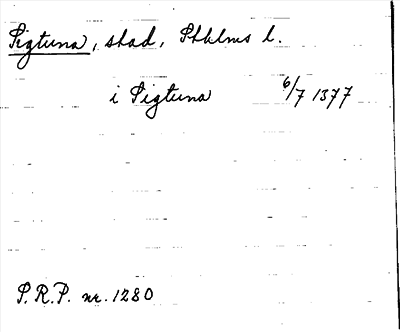 Sigtuna, stad, Sthlms l.
i Sigtuna 6/7 1377
S.R.P. nr. 1280